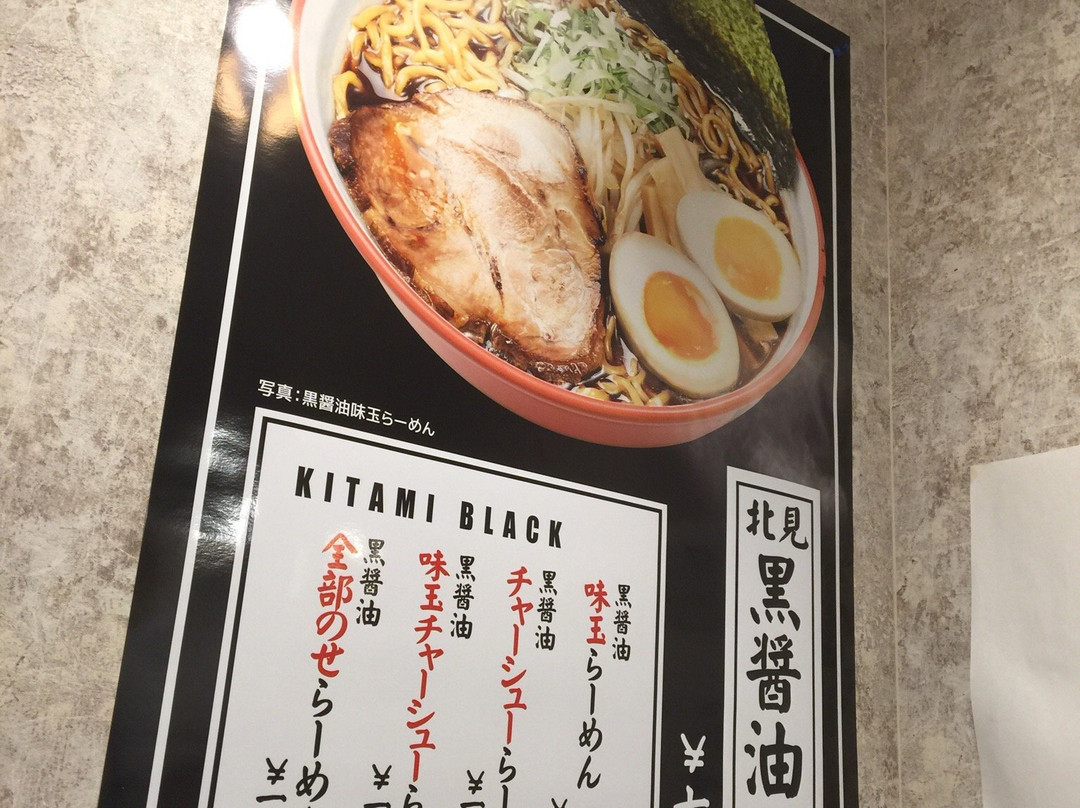 写真：黒醤油味玉らーめん
KITAMI BLACK
北見
黒醤油
¥
黒醤油
味玉らーめん
¥
黒醤油
チャーシューらー
¥一
黒醤油
味玉チャーシューら
¥一
黒醤油
全部のせらーめん
¥一